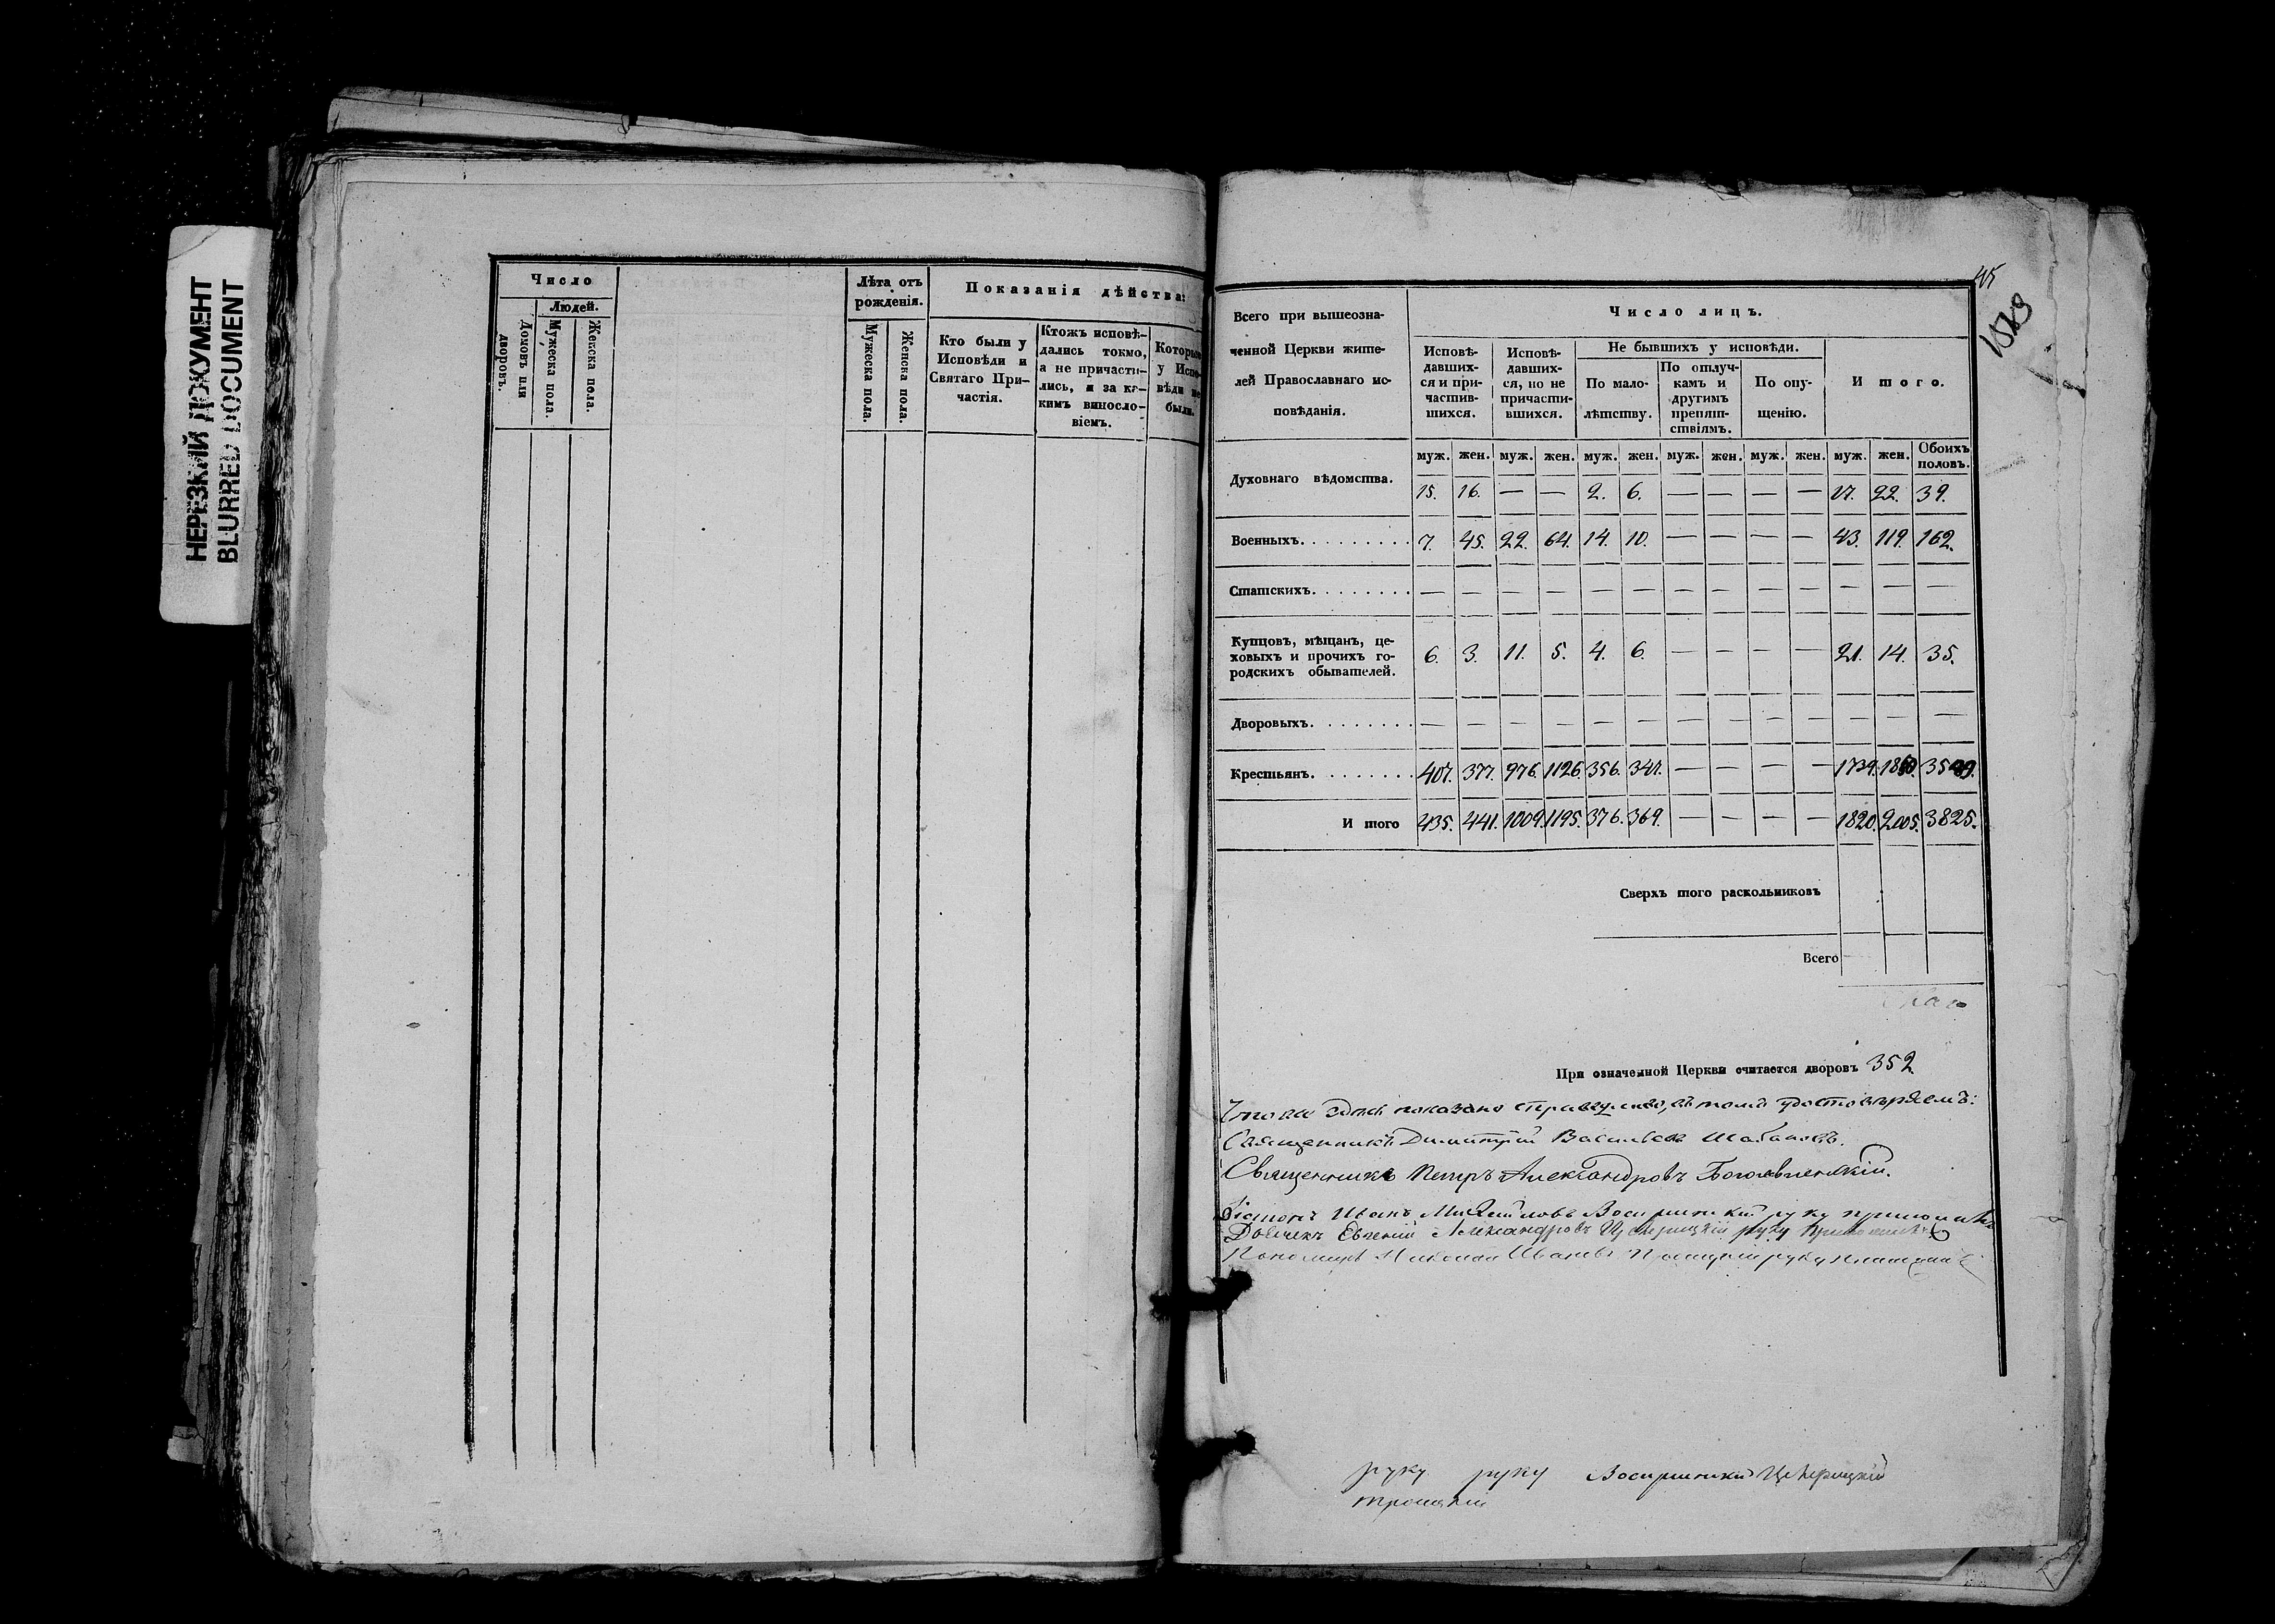 НЕРЕЗКИЙ ДОКУМЕНТ
BLURRED DOCUMENT
Число
Людей.
Домовъ или дворовъ.
Мужеска пола.
Женска пола.
Лѣта отъ рожденія.
Мужеска пола.
Женска пола.
Показанія дѣйства:
Кто были у
Исповѣди и
Святаго При-
частія.
Ктожъ исповѣ-
дались токмо,
а не причасти-
лись, и за ка-
кимъ винословіемъ.
Которые
у Испо-
вѣди не
были.
Всего при вышеозна-
ченной Церкви жите-
лей Православнаго ис-
повѣданія.
Число лицъ.
Исповѣ-
давших-
ся и при-
частив-
шихся.
Исповѣ-
давших-
ся, но не
причасти-
вшихся.
Не бывшихъ у исповѣди.
По мало-
лѣтству.
По отлуч-
камъ и
другимъ
препят-
ствіямъ.
По опу-
щенію.
Итого.
муж. жен. муж. жен. муж. жен. муж. жен. муж. жен. муж. жен. Обоихъ половъ.
Духовнаго вѣдомства. 15. 16. — — 2. 6. — — — — 17. 22. 39.
Военныхъ. 7. 45. 22. 64. 14. 10. — — — — 43. 119. 162.
Статскихъ. — — — — — — — — — — — — —
Купцовъ, мѣщанъ, це-
ховыхъ и прочихъ го-
родскихъ обывателей. 6. 3. 11. 5. 4. 6. — — — — 21. 14. 35.
Дворовыхъ. — — — — — — — — — — — — —
Крестьянъ. 407. 377. 976. 1126. 356. 347. — — — — 1739. 1850. 3589.
Итого 435. 441. 1009. 1195. 376. 369. — — — — 1820. 2005. 3825.
Сверхъ того раскольниковъ
Всего
При означенной Церкви считается дворовъ 352
Что все здѣсь показано справедливо, въ томъ удостовѣряемъ:
Священникъ Димитрій Васильевъ Шабановъ.
Священникъ Петръ Александровъ Богоявленскій.
Діаконъ Иванъ Михайловъ руку приложилъ
Дьячекъ Евгений Александровъ руку приложилъ
Пономарь Николай Ивановъ руку приложилъ
руку руку